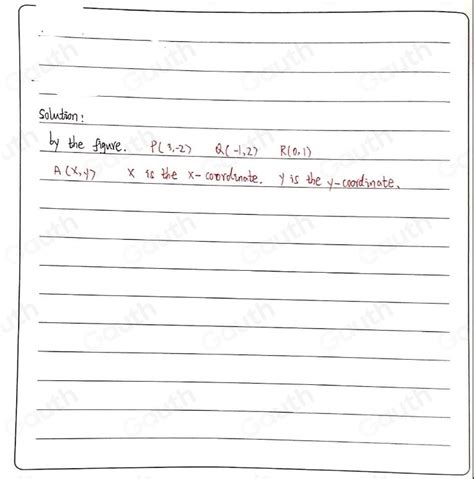 Solution:
by the figure. P(3,-2) Q(-1,2) R(0,1)
A(x,y) x is the x-coordinate. y is the y-coordinate.